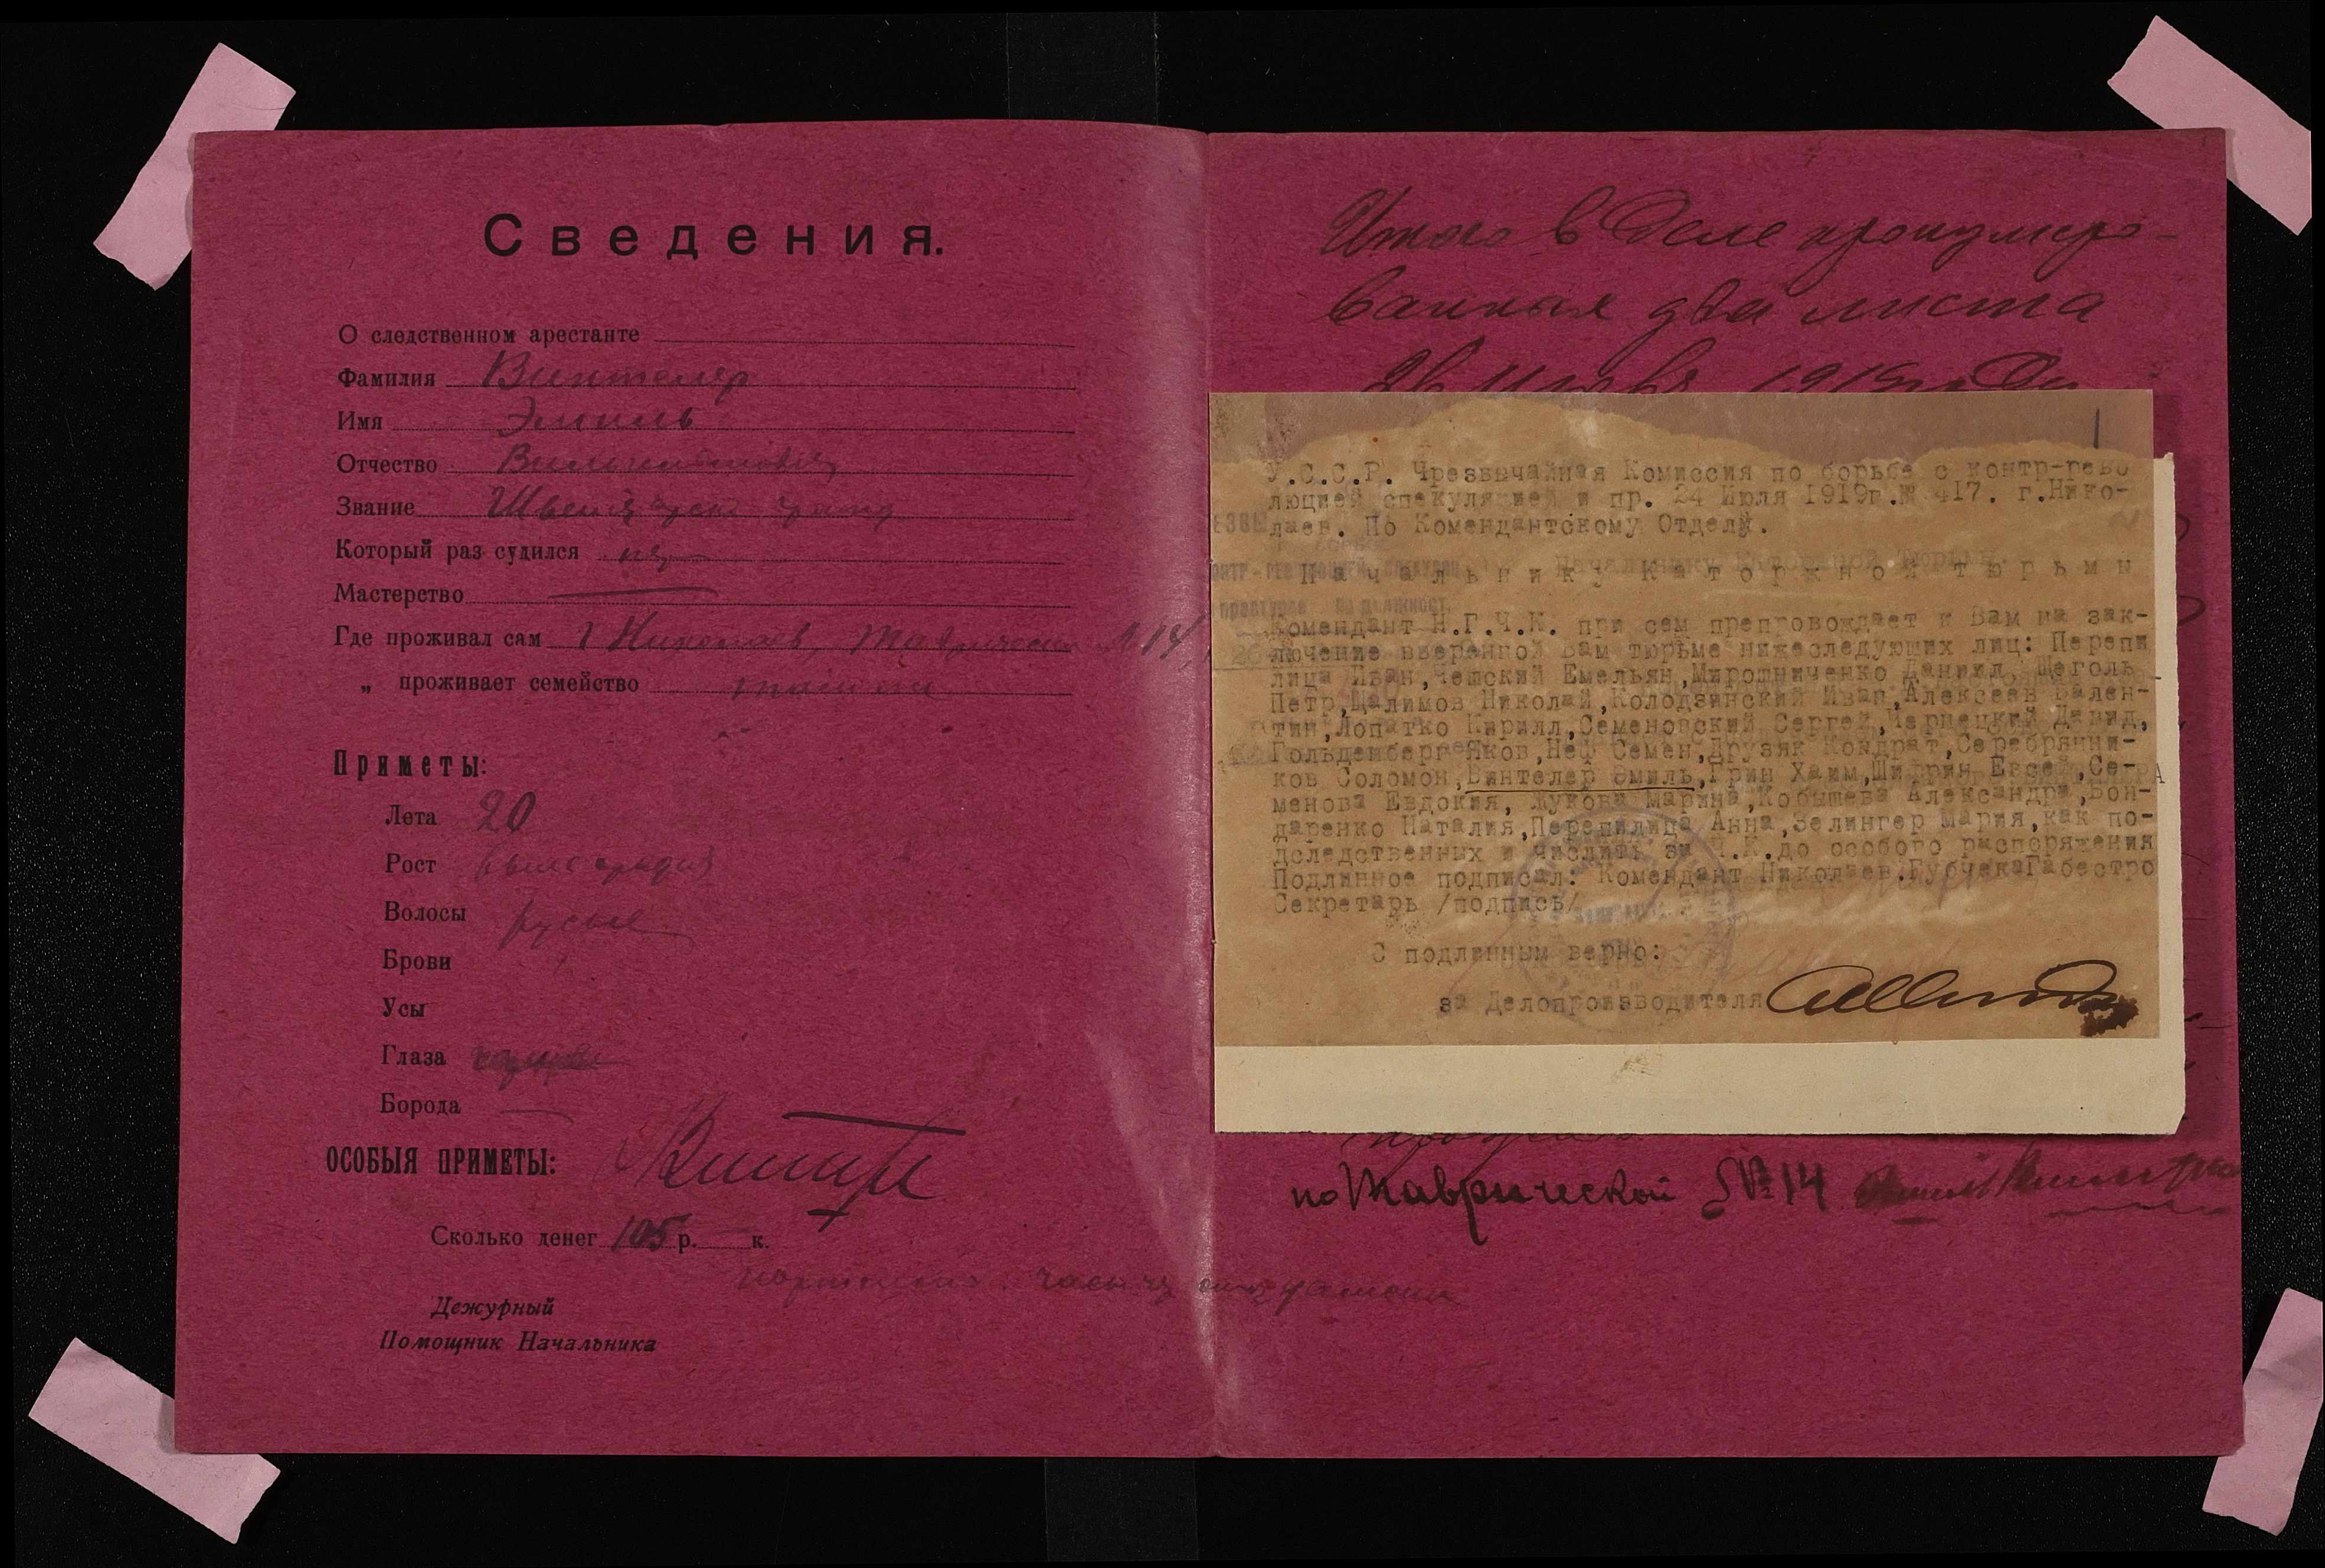 Сведения.
О следственном арестанте
Фамилия Винтелер
Имя Эмиль
Отчество
Звание Швейцарск гражд
Который раз судился
Мастерство
Где проживал сам г Николаев, Таврическ № 14
„ проживает семейство
Приметы:
Лета 20
Рост выше средня
Волосы русые
Брови
Усы
Глаза
Борода
ОСОБЫЯ ПРИМЕТЫ:
Сколько денег 105 р. к.
часы
Дежурный
Помощник Начальника
Итого в деле пронумеро-
ванных два листа
1919 года
1
У.С.С.Р. Чрезвычайная Комиссия по борьбе с контр-рево
люцией спекуляцией и пр. 24 Июля 1919г.№ 417. г.Нико-
лаев. По Комендантскому Отделу.
Начальнику Каторжной тюрьмы
Комендант Н.Г.Ч.К. при сем препровождает к Вам на зак-
лючение вверенной Вам тюрьме нижеследующих лиц: Перепи
лица Иван,Чешский Емельян,Мирошниченко Даниил, Щеголь
Петр,Щалимов Николай,Колодзинский Иван,Алексеев Вален-
тин,Лопатко Кирилл,Семеновский Сергей,Чарнецкий Давид,
Гольденберг Яков,Неф Семен,Друзяк Кондрат,Серебрянни-
ков Соломон,Винтелер Эмиль,Грин Хаим,Шифрин Евсей,Се-
менова Евдокия, Жукова Марина,Кобышева Александра,Бон-
даренко Наталия,Перепилица Анна,Зелингер Мария,как по-
дследственных и числить за Ч.К.до особого распоряжения
Подлинное подписал: Комендант Николаев.ГубчекаГабестро
Секретарь /подпись/
С подлинным верно:
за Делопроизводителя
по Таврической № 14